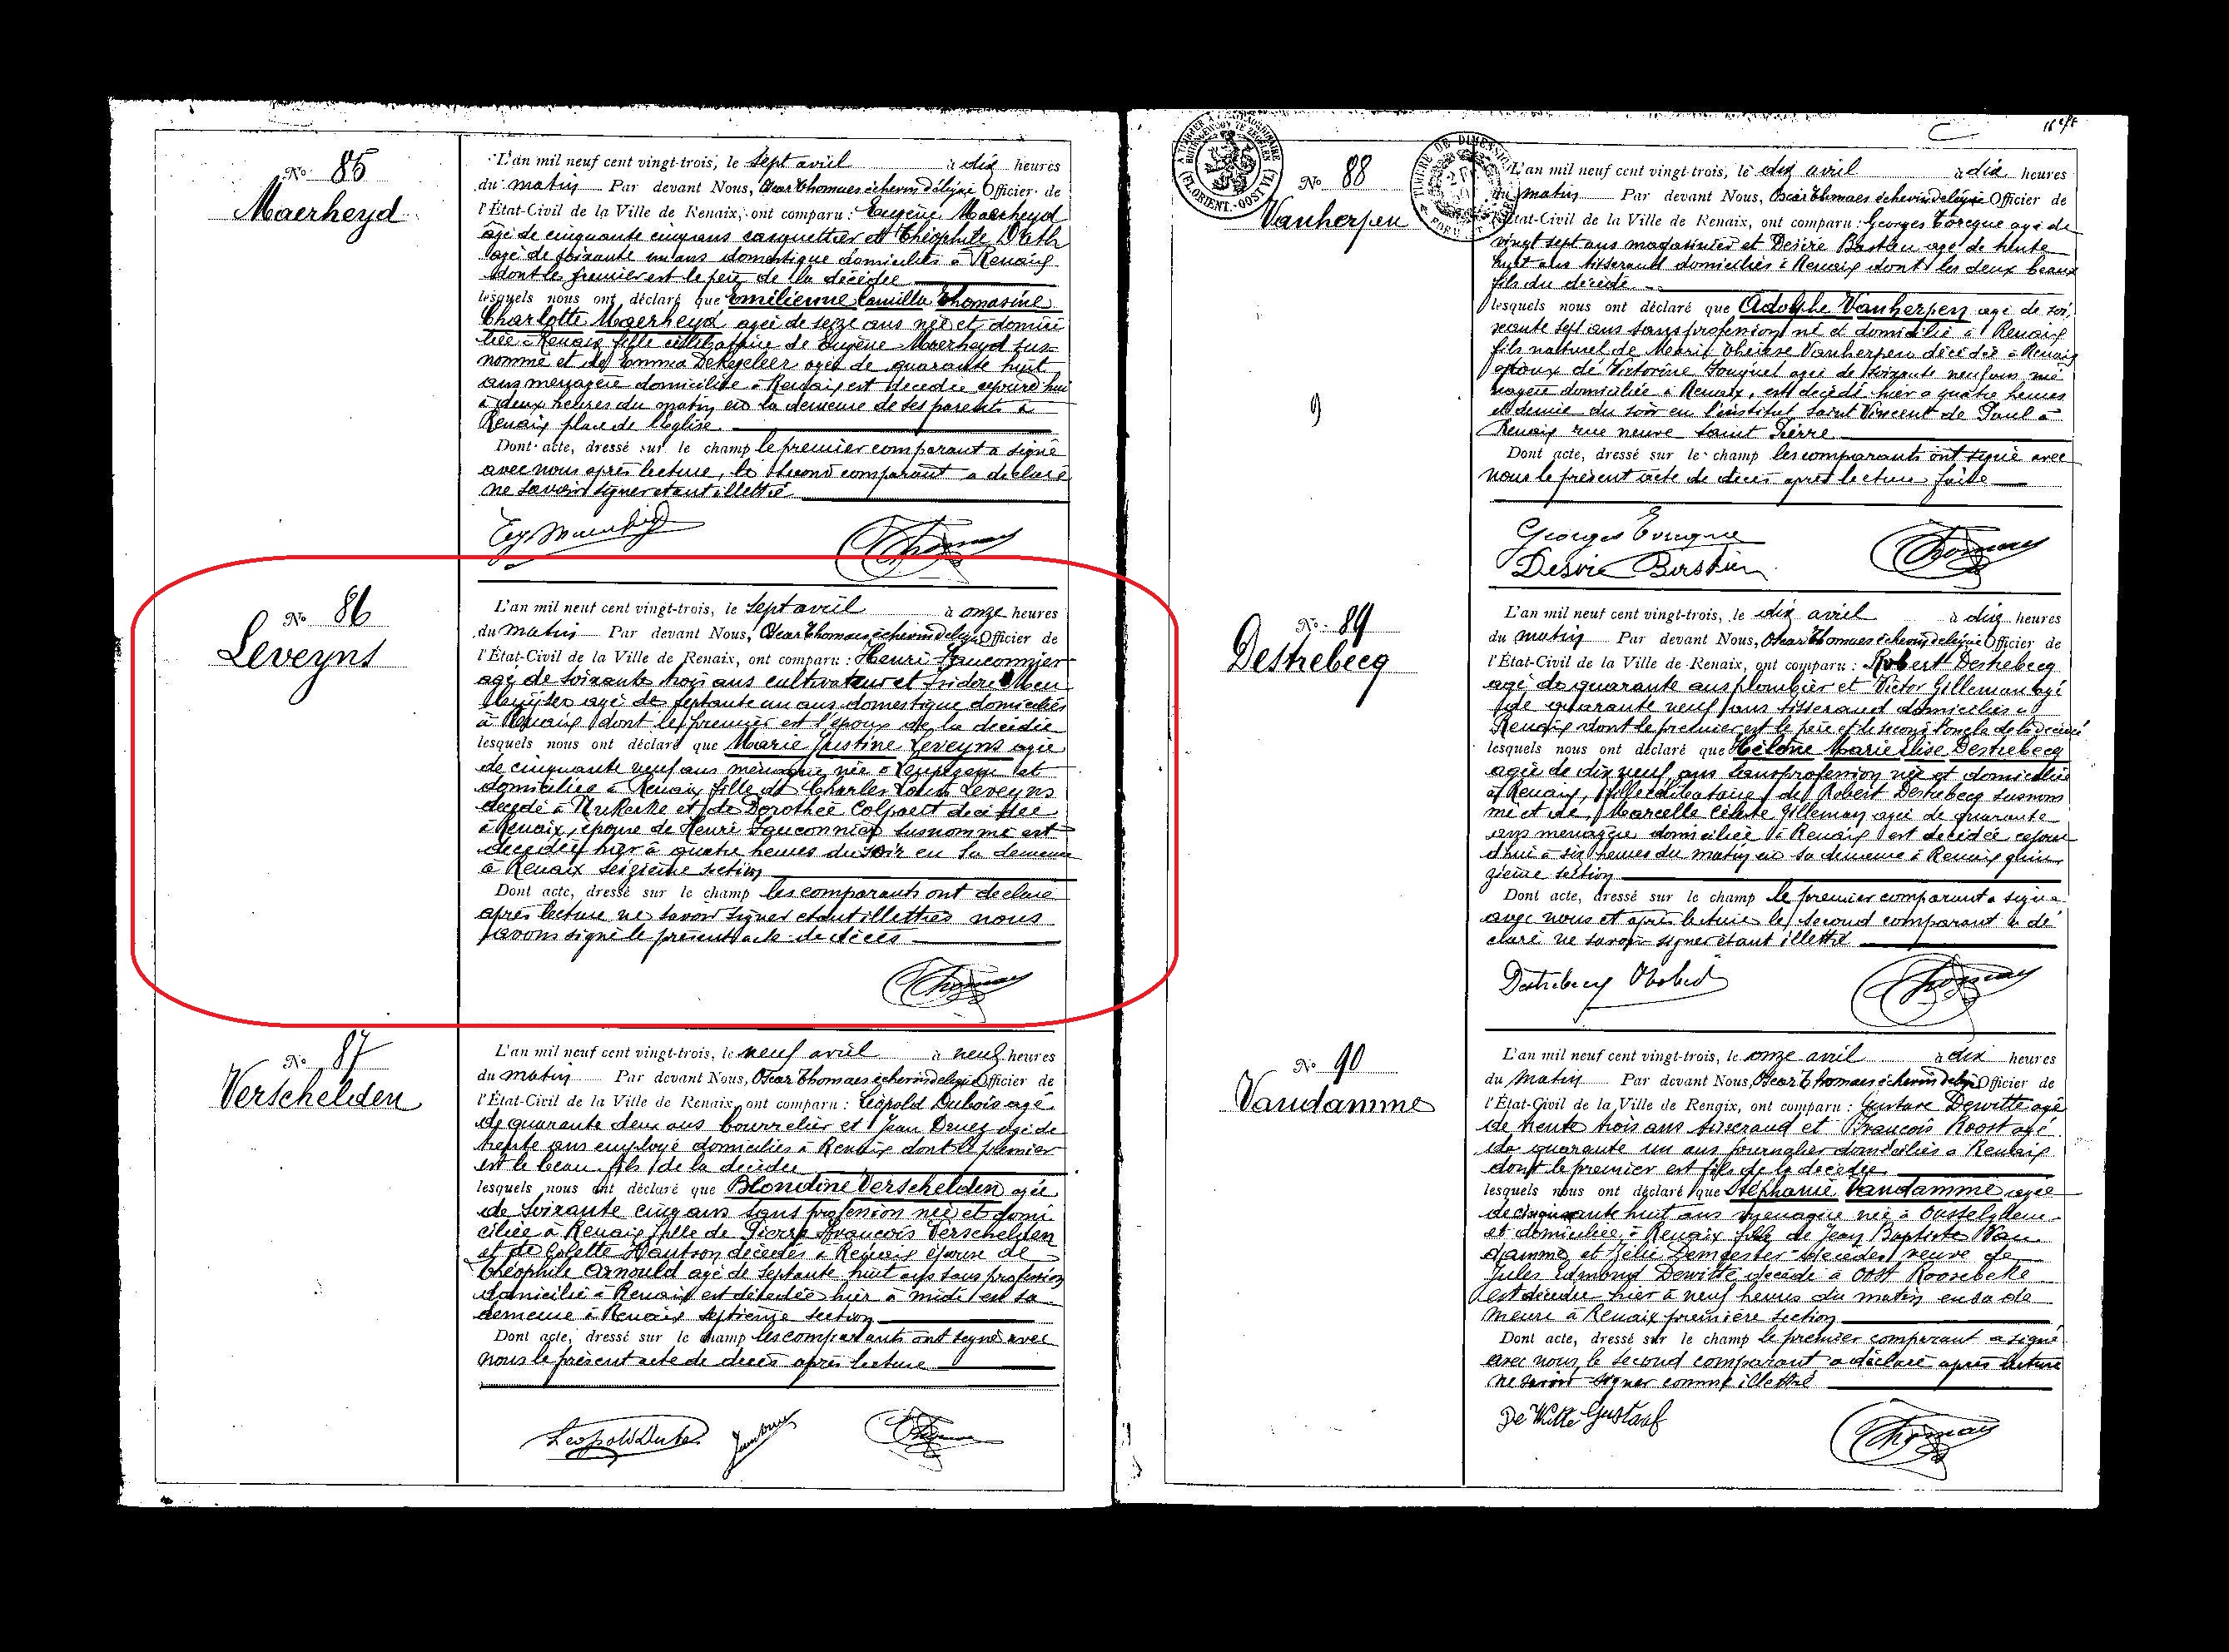 Nº 85
Maerheyd
L'an mil neuf cent vingt-trois, le sept avril à dix heures
du matin Par devant Nous, Oscar Thomaes échevin délégué Officier de
l'État-Civil de la Ville de Renaix, ont comparu : Eugène Maerheyd
agé de cinquante cinq ans casquettier et Théophile
agé de soixante un ans domestique domiciliés à Renaix
dont le premier est le père de la décédée
lesquels nous ont déclaré que Emilienne Camilla Thomasine
Charlotte Maerheyd agée de seize ans née et domici
liée à Renaix fille célibataire de Eugène Maerheyd sus
nommé et de Emma Dekegeleer agée de quarante huit
ans menagère domiciliée à Renaix est décédée aujourd'hui
à deux heures du matin en la demeure de ses parents à
Renaix place de l'église
Dont acte, dressé sur le champ le premier comparant a signé
avec nous après lecture, le second comparant a déclaré
ne savoir signer etant illettré
Nº 86
Leveyns
L'an mil neuf cent vingt-trois, le sept avril à onze heures
du matin Par devant Nous, Oscar Thomaes échevin délégué Officier de
l'État-Civil de la Ville de Renaix, ont comparu : Henri Fauconnier
agé de soixante trois ans cultivateur et Isidore
agé de septante un ans domestique domiciliés
à Renaix dont le premier est l'époux de la décédée
lesquels nous ont déclaré que Marie Justine Leveyns agée
de cinquante neuf ans menagère née à et
domiciliée à Renaix fille de Charles Louis Leveyns
décédé à Nukerke et de Dorothée Colpaert décédée
à Renaix, épouse de Henri Fauconnier susnommé est
décédée hier à quatre heures du soir en sa demeure
à Renaix seizième section
Dont acte, dressé sur le champ les comparants ont déclaré
après lecture ne savoir signer etant illettrés nous
avons signé le présent acte de décès
Nº 87
Verschelden
L'an mil neuf cent vingt-trois, le neuf avril à neuf heures
du matin Par devant Nous, Oscar Thomaes échevin délégué Officier de
l'État-Civil de la Ville de Renaix, ont comparu : Léopold Dubois agé
de quarante deux ans bourrelier et Jean agé de
trente ans employé domiciliés à Renaix dont le premier
est le beau fils de la décédée
lesquels nous ont déclaré que Blondine Verschelden agée
de soixante cinq ans sans profession née et domi
ciliée à Renaix fille de Pierre François Verschelden
et de Colette Hantson décédés à Renaix épouse de
Théophile Arnould agé de septante huit ans sans profession
domicilié à Renaix est décédée hier à midi en sa
demeure à Renaix septième section
Dont acte, dressé sur le champ les comparants ont signé avec
nous le présent acte de décès après lecture
Nº 88
Vanherpen
L'an mil neuf cent vingt-trois, le dix avril à dix heures
du matin Par devant Nous, Oscar Thomaes échevin délégué Officier de
l'État-Civil de la Ville de Renaix, ont comparu : Georges agé de
vingt sept ans magasinier et Désiré Bastien agé de trente
huit ans tisserand domiciliés à Renaix dont les deux beaux
fils du décédé
lesquels nous ont déclaré que Adolphe Vanherpen agé de soi
xante sept ans sans profession né et domicilié à Renaix
fils naturel de Marie Thérèse Vanherpen décédée à Renaix
époux de Victorine agée de soixante neuf ans mé
nagère domiciliée à Renaix, est décédé hier a quatre heures
et demie du soir en l'institut Saint Vincent de Paul à
Renaix rue neuve Saint Pierre
Dont acte, dressé sur le champ les comparants ont signé avec
nous le présent acte de décès après lecture faite
Nº 89
Destrebecq
L'an mil neuf cent vingt-trois, le dix avril à dix heures
du matin Par devant Nous, Oscar Thomaes échevin délégué Officier de
l'État-Civil de la Ville de Renaix, ont comparu : Robert Destrebecq
agé de quarante ans plombier et Victor Gilleman agé
de quarante neuf ans tisserand domiciliés à
Renaix dont le premier est le père et le second l'oncle de la décédée
lesquels nous ont déclaré que Hélène Marie Elise Destrebecq
agée de dix neuf ans sans profession née et domiciliée
à Renaix, fille célibataire de Robert Destrebecq susnom
mé et de Marcelle Céleste Gilleman agée de quarante
ans menagère domiciliée à Renaix est décédée cejour
d'hui à six heures du matin en sa demeure à Renaix quin
zième section
Dont acte, dressé sur le champ le premier comparant a signé
avec nous et après lecture le second comparant a dé
claré ne savoir signer étant illettré
Nº 90
Vandamme
L'an mil neuf cent vingt-trois, le onze avril à dix heures
du matin Par devant Nous, Oscar Thomaes échevin délégué Officier de
l'État-Civil de la Ville de Renaix, ont comparu : Gustave Dewitte agé
de trente trois ans tisserand et François Roost agé
de quarante un ans journalier domiciliés à Renaix
dont le premier est fils de la décédée
lesquels nous ont déclaré que Stéphanie Vandamme agée
de cinquante huit ans menagère née à
et domiciliée à Renaix fille de Jean Baptiste Van
damme et Zélie décédés veuve de
Jules Edmond Dewitte décédé à Oost Roosebeke
est décédée hier à neuf heures du matin en sa de
meure à Renaix première section
Dont acte, dressé sur le champ le premier comparant a signé
avec nous, le second comparant a déclaré après lecture
ne savoir signer comme illettré
De Witte Gustaaf